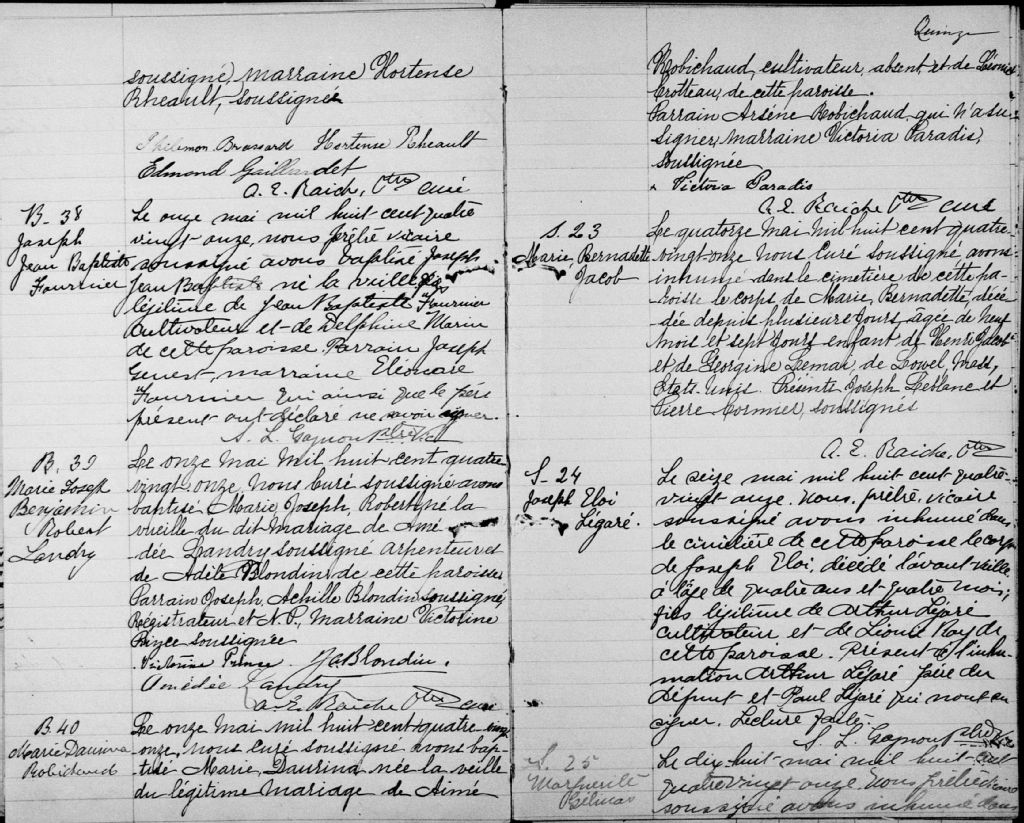 soussigné, marraine Hortense
Rheault, soussignée
Philemon Brassard Hortense Rheault
Edmond Gaillardet
A. E. Raiche, Ptre curé
B. 38
Joseph
Jean Baptiste
Fournier
Le onze mai mil huit cent quatre
vingt onze, nous prêtre vicaire
soussigné avons baptisé Joseph
Jean Baptiste né la veille
légitime de Jean Baptiste Fournier
cultivateur et de Delphine Marin
de cette paroisse. Parrain Joseph
Genest, marraine
Fournier qui ainsi que le père
présent ont déclaré ne savoir signer.
S. L. Gagnon ptre Vic
B. 39
Marie Joseph
Benjamin
Robert
Landry
Le onze mai mil huit cent quatre
vingt onze, nous Curé soussigné avons
baptisé Marie, Joseph, Robert, né la
vieille du dit mariage de Amé
dée Landry soussigné arpenteur et
de Adèle Blondin de cette paroisse
Parrain Joseph, Achille Blondin soussigné,
Régistrateur et N.P., Marraine Victorine
soussignée
Victorine Prince. JABlondin.
Amédée Landry
A. E. Raiche Ptre curé
B. 40
Marie Daurina
Robichaud
Le onze mai mil huit cent quatre vingt
onze, nous curé soussigné avons bap-
tisé Marie, Daurina, née la veille
du légitime mariage de Aimé
Quinze
Robichaud, cultivateur, absent, et de
Crotteau, de cette paroisse.
Parrain Arsène Robichaud, qui n'a su
signer, marraine Victoria Paradis,
soussignée
x Victoria Paradis
A. E. Raiche Ptre curé
S. 23
Marie Bernadette
Jacob
Le quatorze mai mil huit cent quatre-
vingt onze nous curé soussigné avons
inhumé dans le cimetière de cette pa-
roisse le corps de Marie, Bernadette, décé-
dée depuis plusieurs jours, agée de neuf
mois et sept jours enfant de Henri Jacob
et de Georgine Lemai, de Lowel, Mass,
Etats Unis. Présents Joseph Leblanc et
Pierre Cormier, soussignés
A. E. Raiche, Ptre
S. 24
Joseph Eloi
Légaré.
Le seize mai mil huit cent quatre-
vingt onze. Nous, prêtre, vicaire
soussigné avons inhumé dans
le cimetière de cette paroisse le corps
de Joseph Eloi, décédé l'avant veille
à l'âge de quatre ans et quatre mois,
fils légitime de Arthur Légaré
cultivateur et de Léonie Roy de
cette paroisse. Présent à l'inhu-
mation Arthur Légaré père du
défunt et Paul Légaré qui n'ont su
signer. Lecture faite.
S. L. Gagnon ptre Vic
S. 25
Marguerite
Le dix huit mai mil huit cent
quatre vingt onze. Nous prêtre vicaire
soussigné avons inhumé dans